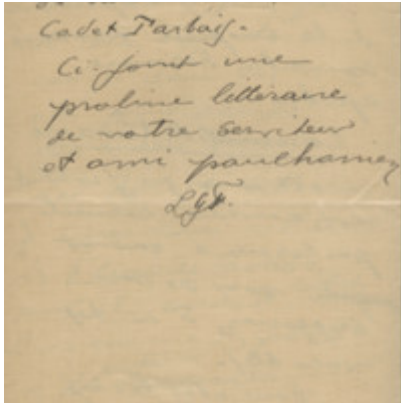 Cadet Tarbais.
Ci-joint une
praline littéraire
de votre serviteur
et ami
LGF.